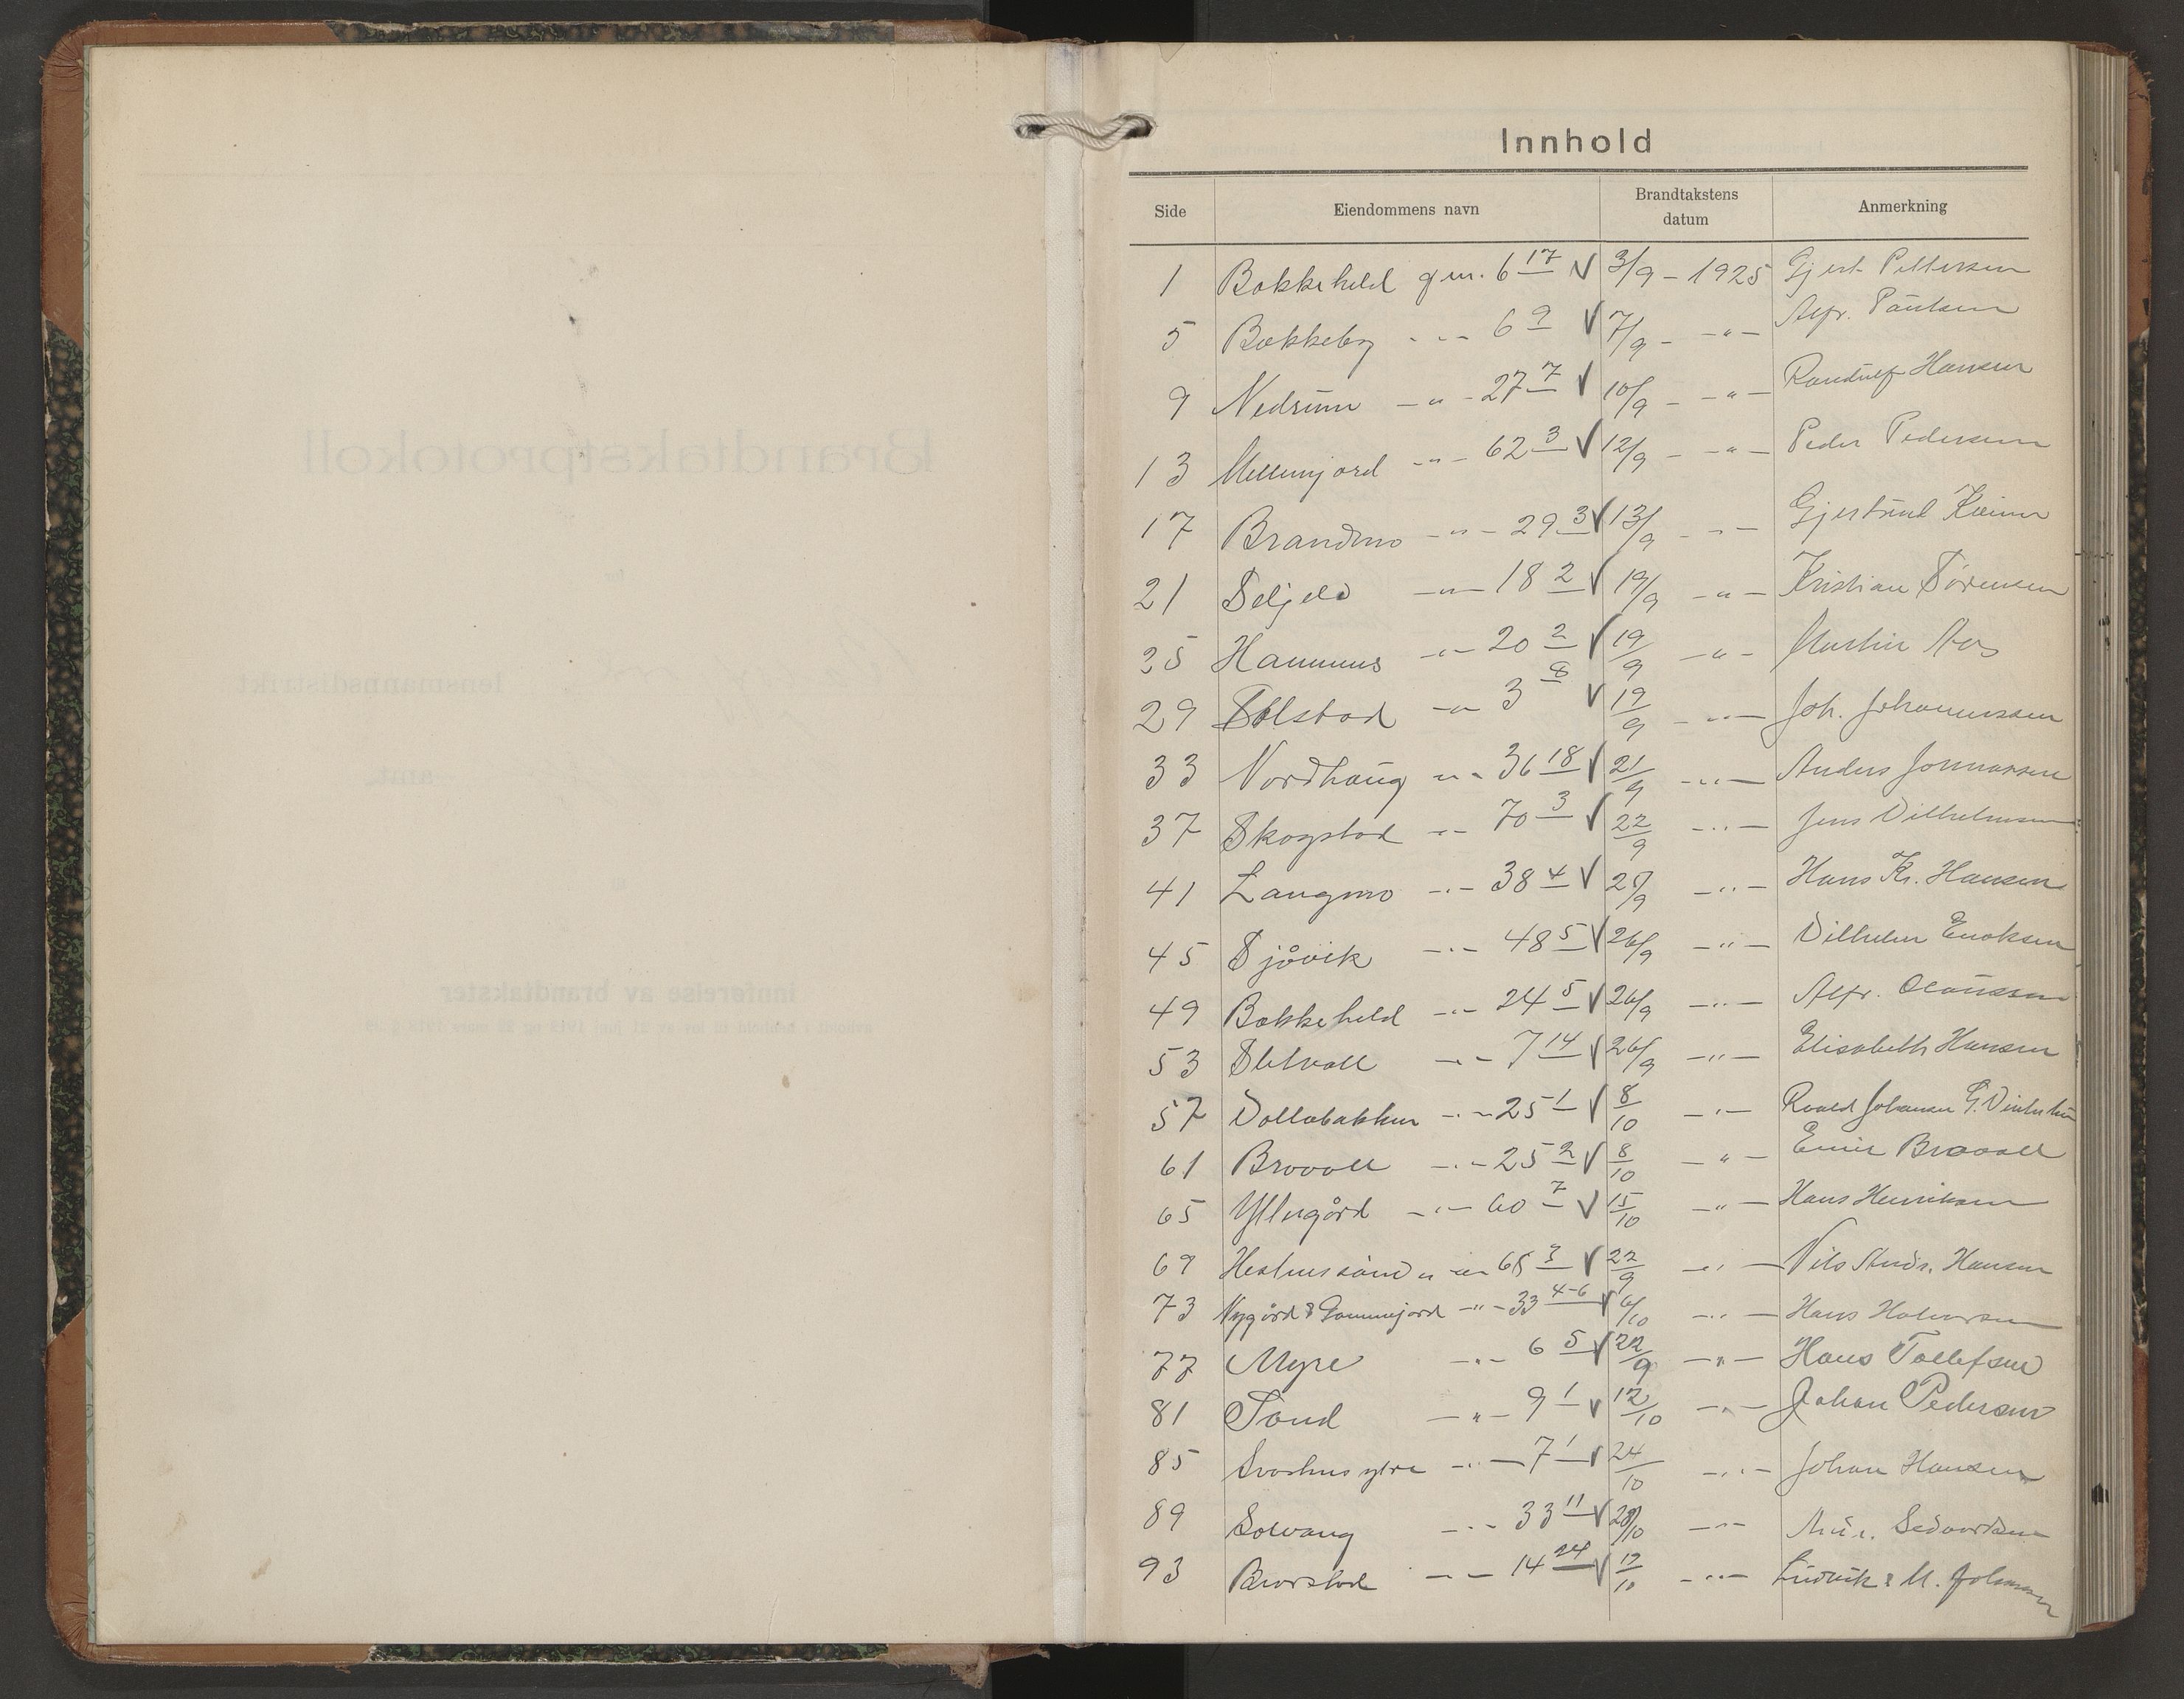 Innhold
Side Eiendommens navn Brandtakstens datum Anmerkning
1 Bakkeheld gnr. 6 17 √ 3/9 - 1925 Gjert Pettersen
5 Bakkeby - " - 6 9 √ 7/9 - - " - Alfr. Paulsen
9 Nedrum - " - 27 7 √ 10/9 - - " - Randulf Hansen
13 Mellemjord - " - 62 3 √ 12/9 - - " - Peder Pedersen
17 Brandmo - " - 29 3 √ 13/9 - " -
21 Seljeli - " - 18 2 √ 19/9 - " - Kristian Sørensen
25 Hamnnes - " - 20 2 √ 19/9 - " - Martin Aas
29 Solstad - " - 3 8 √ 19/9 - " - Joh. Johannessen
33 Nordhaug " - 36 18 √ 21/9 - " - Anders Johnassen
37 Skogstad - " - 70 3 √ 22/9 - " - Jens Vilhelmsen
41 Langmo - " - 38 4 √ 25/9 - " - Hans Kr. Hansen
45 Sjåvik - " - 48 5 √ 26/9 - " - Vilhelm Enoksen
49 Bakkeheld - " - 24 5 √ 26/9 - " - Alfr. Olaussen
53 Sletvoll - " - 7 14 √ 26/9 - " - Elisabeth Hansen
57 Vollabakken - " - 25 1 √ 8/10 - " - Roald Johansen G.
61 Brovoll - " - 25 2 √ 8/10 - " - Emil Brovoll
65 Yttergård - " - 60 7 √ 15/10 - " - Hans Henriksen
69 - " - 65 3 √ 22/9 - " - Nils Andr. Hansen
73 Nygård & Gammejord - " - 33 4-6 √ 6/10 - " - Hans Halvorsen
77 Myre - " - 6 5 √ 22/9 - " - Hans Tollefsen
81 Sand - " - 9 1 √ 12/10 - " - Johan Pedersen
85 ytre - " - 7 1 √ 24/10 - " - Johan Hansen
89 Solvang - " - 33 11 √ 28/10 - " - Sedvardsen
93 - " - 14 24 √ 12/10 - " - Ludvik & M. Johansen
Brandtakstprotokoll
for
lensmannsdistrikt
amt
til
innførelse av brandtakster